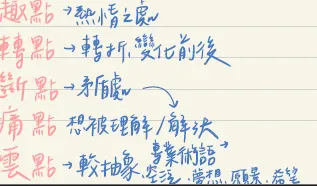 趣點→熱情之處
轉點→轉折、變化前後
斷點→矛盾處
痛點 想被理解/解決
專業術語
雲點→較抽象、空泛、夢想、願景、希望